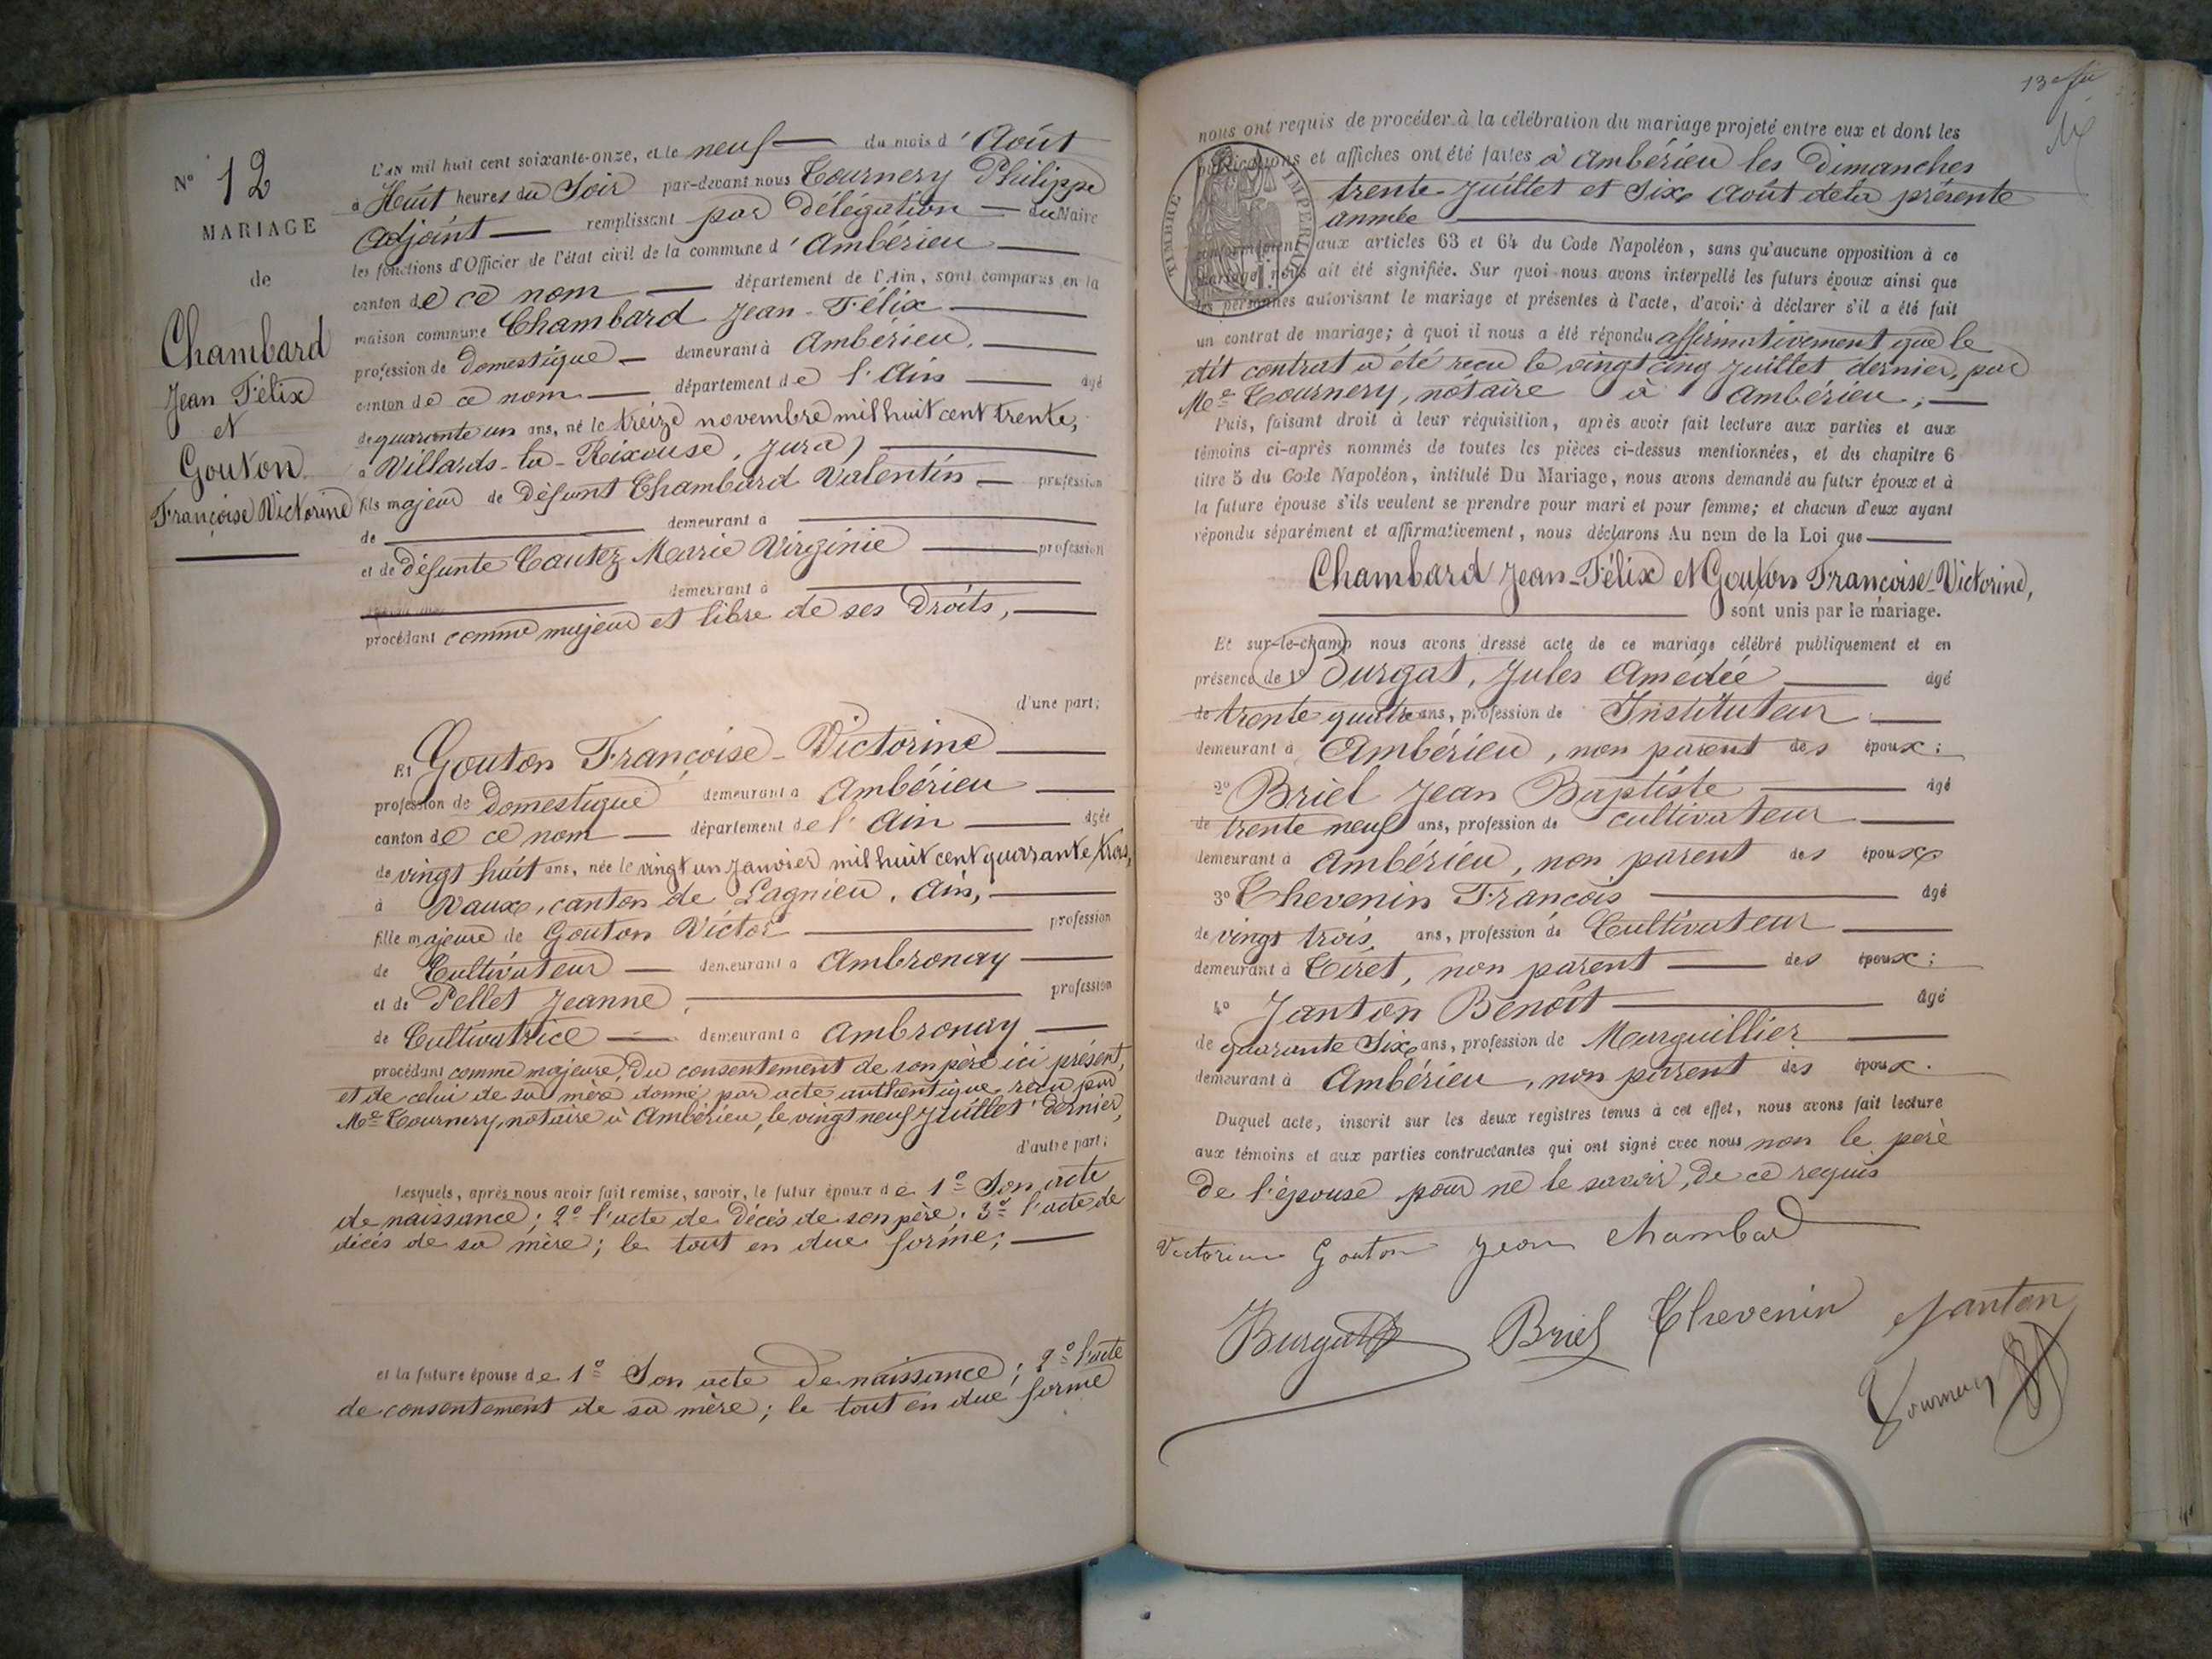 N° 12
MARIAGE
de
Chambard
Jean Félix
et
Gouton
Françoise Victorine
L'an mil huit cent soixante-onze, et le neuf du mois d'Août
à Huit heures du Soir par-devant nous Tournery Philippe
Adjoint remplissant par délégation du Maire
les fonctions d'Officier de l'état civil de la commune d'Ambérieu
canton de ce nom département de l'Ain, sont comparus en la
maison commune Chambard Jean-Félix
profession de Domestique demeurant à Ambérieu,
canton de ce nom, département de l'Ain âgé
de quarante un ans, né le treize novembre mil huit cent trente,
à Villards-la-Rixouse, Jura,
fils majeur de défunt Chambard Valentin profession
de demeurant à
et de Défunte Cautez Marie Virginie profession
demeurant à
procédant comme majeur et libre de ses Droits,
d'une part;
Et Gouton Françoise-Victorine
profession de Domestique demeurant à Ambérieu
canton de ce nom département de l'Ain âgée
de vingt huit ans, née le vingt un Janvier mil huit cent quarante trois,
à Vaux, canton de Lagnieu, Ain,
fille majeure de Gouton Victor profession
de Cultivateur demeurant à Ambronay
et de Pellet Jeanne, profession
de Cultivatrice demeurant à Ambronay
procédant comme majeure, Du consentement de son père ici présent,
et de celui de sa mère donné par acte authentique reçu par
Me Tournery, notaire à Ambérieu, le vingt neuf Juillet dernier,
d'autre part;
Lesquels, après nous avoir fait remise, savoir, le futur époux de 1° Son acte
de naissance; 2° l'acte de Décès de son père; 3° l'acte de
décès de sa mère; le tout en due forme;
et la future épouse de 1° Son acte de naissance; 2° l'acte
de consentement de sa mère; le tout en due forme
nous ont requis de procéder à la célébration du mariage projeté entre eux et dont les
publications et affiches ont été faites à Ambérieu les Dimanches
trente Juillet et Six Août de la présente
année
TIMBRE IMPERIAL
conformément aux articles 63 et 64 du Code Napoléon, sans qu'aucune opposition à ce
mariage nous ait été signifiée. Sur quoi nous avons interpellé les futurs époux ainsi que
les personnes autorisant le mariage et présentes à l'acte, d'avoir à déclarer s'il a été fait
un contrat de mariage; à quoi il nous a été répondu affirmativement que le
dit contrat a été reçu le vingt cinq Juillet dernier, par
Me Tournery, notaire à Ambérieu;
Puis, faisant droit à leur réquisition, après avoir fait lecture aux parties et aux
témoins ci-après nommés de toutes les pièces ci-dessus mentionnées, et du chapitre 6
titre 5 du Code Napoléon, intitulé Du Mariage, nous avons demandé au futur époux et à
la future épouse s'ils veulent se prendre pour mari et pour femme; et chacun d'eux ayant
répondu séparément et affirmativement, nous déclarons Au nom de la Loi que
Chambard Jean-Félix et Gouton Françoise-Victorine,
sont unis par le mariage.
Et sur-le-champ nous avons dressé acte de ce mariage célébré publiquement et en
présence de 1° Burgat, Jules Amédée âgé
de trente quatre ans, profession de Instituteur
demeurant à Ambérieu, non parent des époux;
2° Briel Jean Baptiste âgé
de trente neuf ans, profession de cultivateur
demeurant à Ambérieu, non parent des époux
3° Thevenin François âgé
de vingt trois ans, profession de Cultivateur
demeurant à Tiret, non parent des époux;
4° Janton Benoît âgé
de quarante Six ans, profession de Marguillier
demeurant à Ambérieu, non parent des époux.
Duquel acte, inscrit sur les deux registres tenus à cet effet, nous avons fait lecture
aux témoins et aux parties contractantes qui ont signé avec nous non le père
de l'épouse pour ne le savoir, de ce requis
Victorine Gouton Jean Chambard
Burgat Briel Thevenin Janton
Tournery